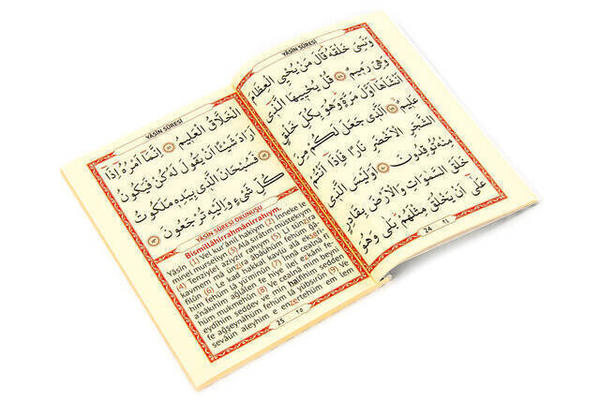 YÂSÎN SÛRESİ
وَنَسِىَ خَلْقَهُ قَالَ مَنْ يُحْيِى الْعِظَامَ
وَهِىَ رَمِيمٌ قُلْ يُحْيِيهَا الَّذِى
اَنْشَاَهَا اَوَّلَ مَرَّةٍ وَهُوَ بِكُلِّ خَلْقٍ
عَلِيمٌ اَلَّذِى جَعَلَ لَكُمْ مِنَ
الشَّجَرِ الْاَخْضَرِ نَارًا فَاِذَا اَنْتُمْ
مِنْهُ تُوقِدُونَ اَوَلَيْسَ الَّذِى
خَلَقَ السَّمٰوَاتِ وَالْاَرْضَ بِقَادِرٍ
عَلٰى اَنْ يَخْلُقَ مِثْلَهُمْ بَلٰى وَهُوَ
24
YÂSÎN SÛRESİ
الْخَلَّاقُ الْعَلِيمُ اِنَّمَا اَمْرُهُ اِذَا
اَرَادَ شَيْئًا اَنْ يَقُولَ لَهُ كُنْ فَيَكُونُ
فَسُبْحَانَ الَّذِى بِيَدِهِ مَلَكُوتُ
كُلِّ شَىْءٍ وَاِلَيْهِ تُرْجَعُونَ
YÂSÎN SÛRESİ OKUNUŞU
Bismillâhirrahmânirrahıym.
Yâsîn (1) Vel kur'ânil hakiym (2) İnneke le
minel murseliyn (3) Alâ sırâtım müstekıym
(4) Tenziylel aziyzir rahiym (5) Li tünzira
kavmem mâ ünzira âbâühüm fehüm ğâ-
filûn (6) Le kad hakkal kavlü alâ ekseri-
him fehüm lâ yü'minûn (7) İnnâ cealnâ fî
a'nâkıhim ağlâlen fe hiye ilel ezkâni fe-
hüm mukmehûn (8) Ve cealnâ mim beyni
eydîhim sedden ve min halfihim sedden
fe ağşeynâhüm fehüm lâ yübsırûn (9) Ve
sevâün aleyhim e enzertehüm em lem
25 ٢٥